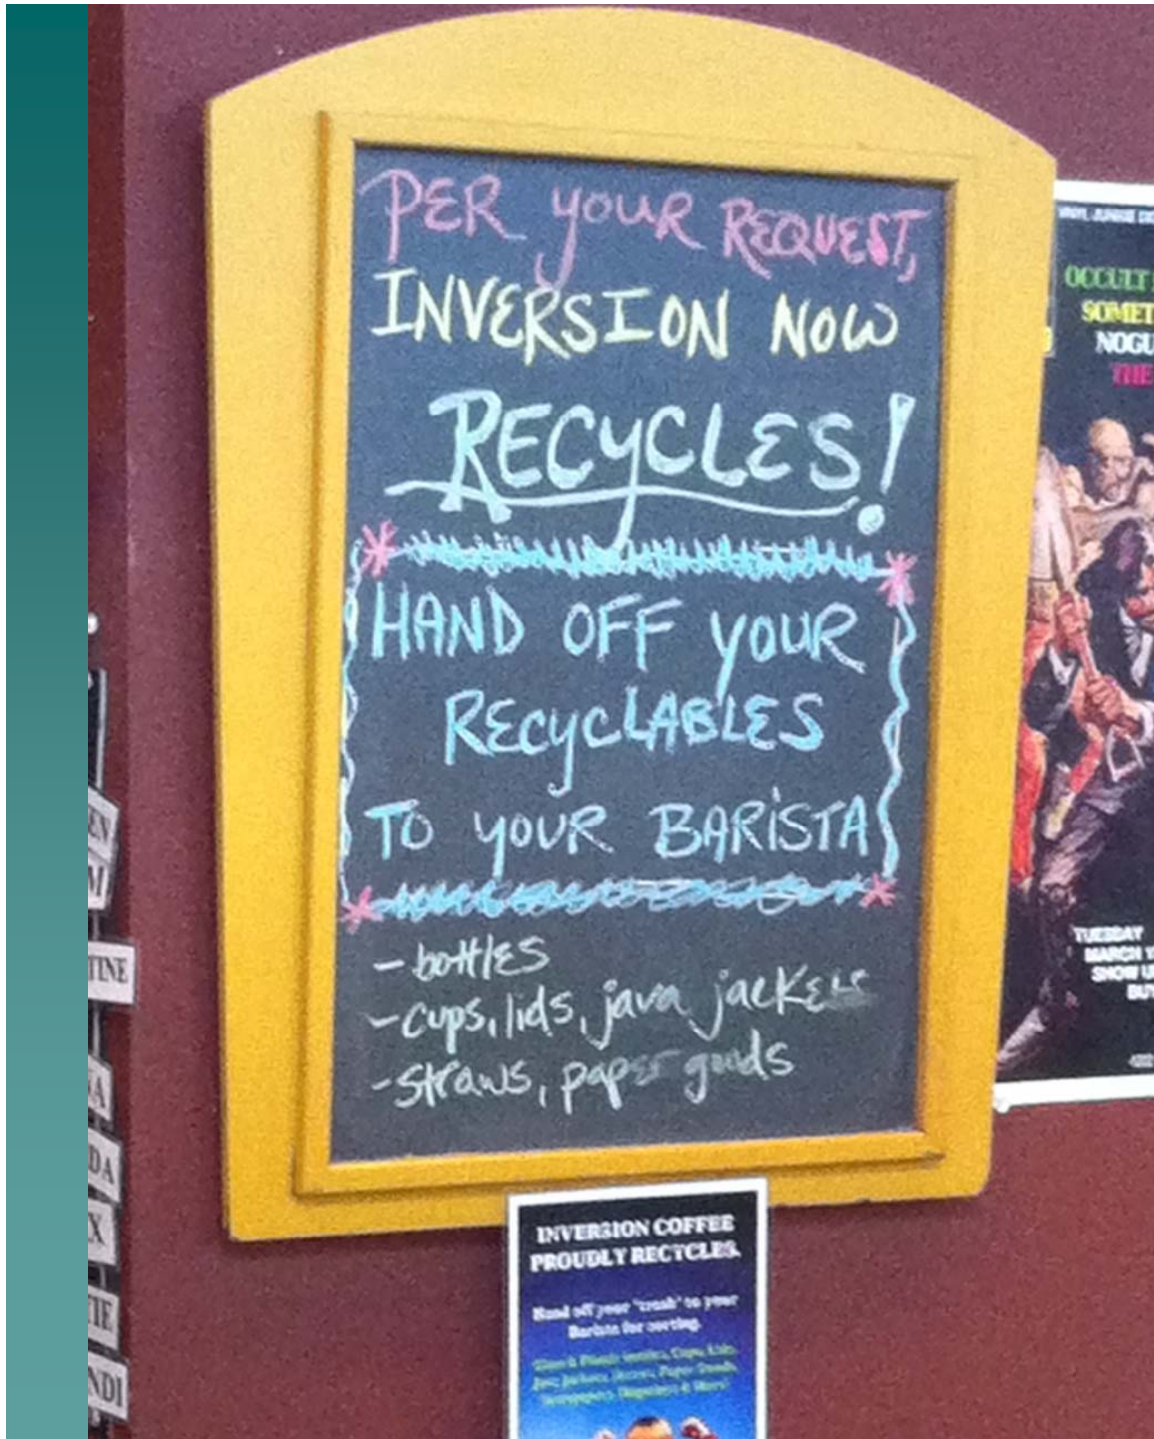 PER YOUR REQUEST,
INVERSION NOW
RECYCLES!
HAND OFF YOUR
RECYCLABLES
TO YOUR BARISTA
- bottles
- cups, lids, java jackets
- straws, paper goods
INVERSION COFFEE
PROUDLY RECYCLES.
Hand off your "trash" to your
Barista for sorting.
OCCULT
SOMET
NOGU
THE
TUESDAY
MARCH
SHOW U
BUY
EN
TINE
DA
X
TIE
NDI